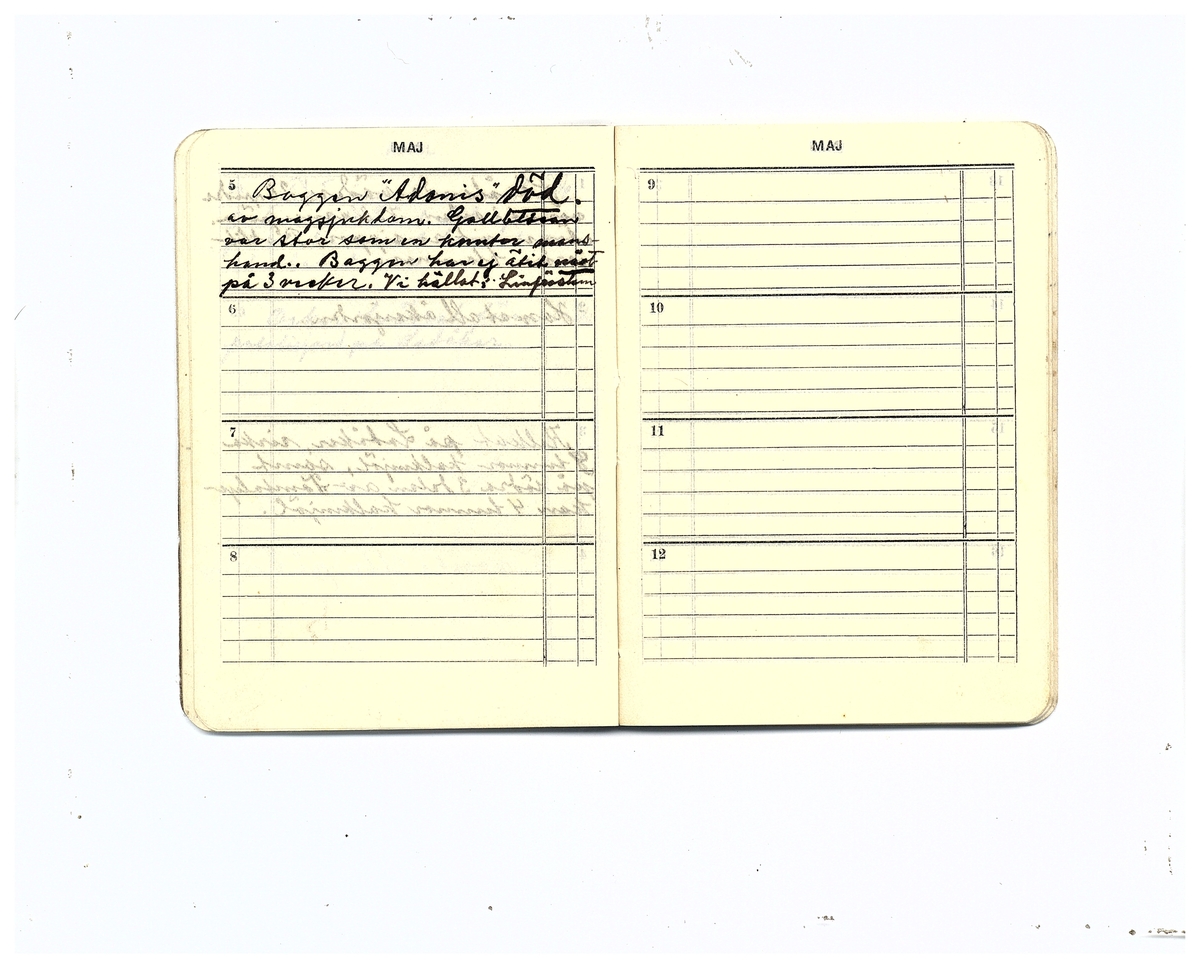 MAJ
5 Baggen "Adonis" död.
av magsjukdom. Gallblåsan
var stor som en knuten mans-
hand.. Baggen har ej ätit
på 3 veckor. Vi hällat i Linfröslem
6
7
8
MAJ
9
10
11
12